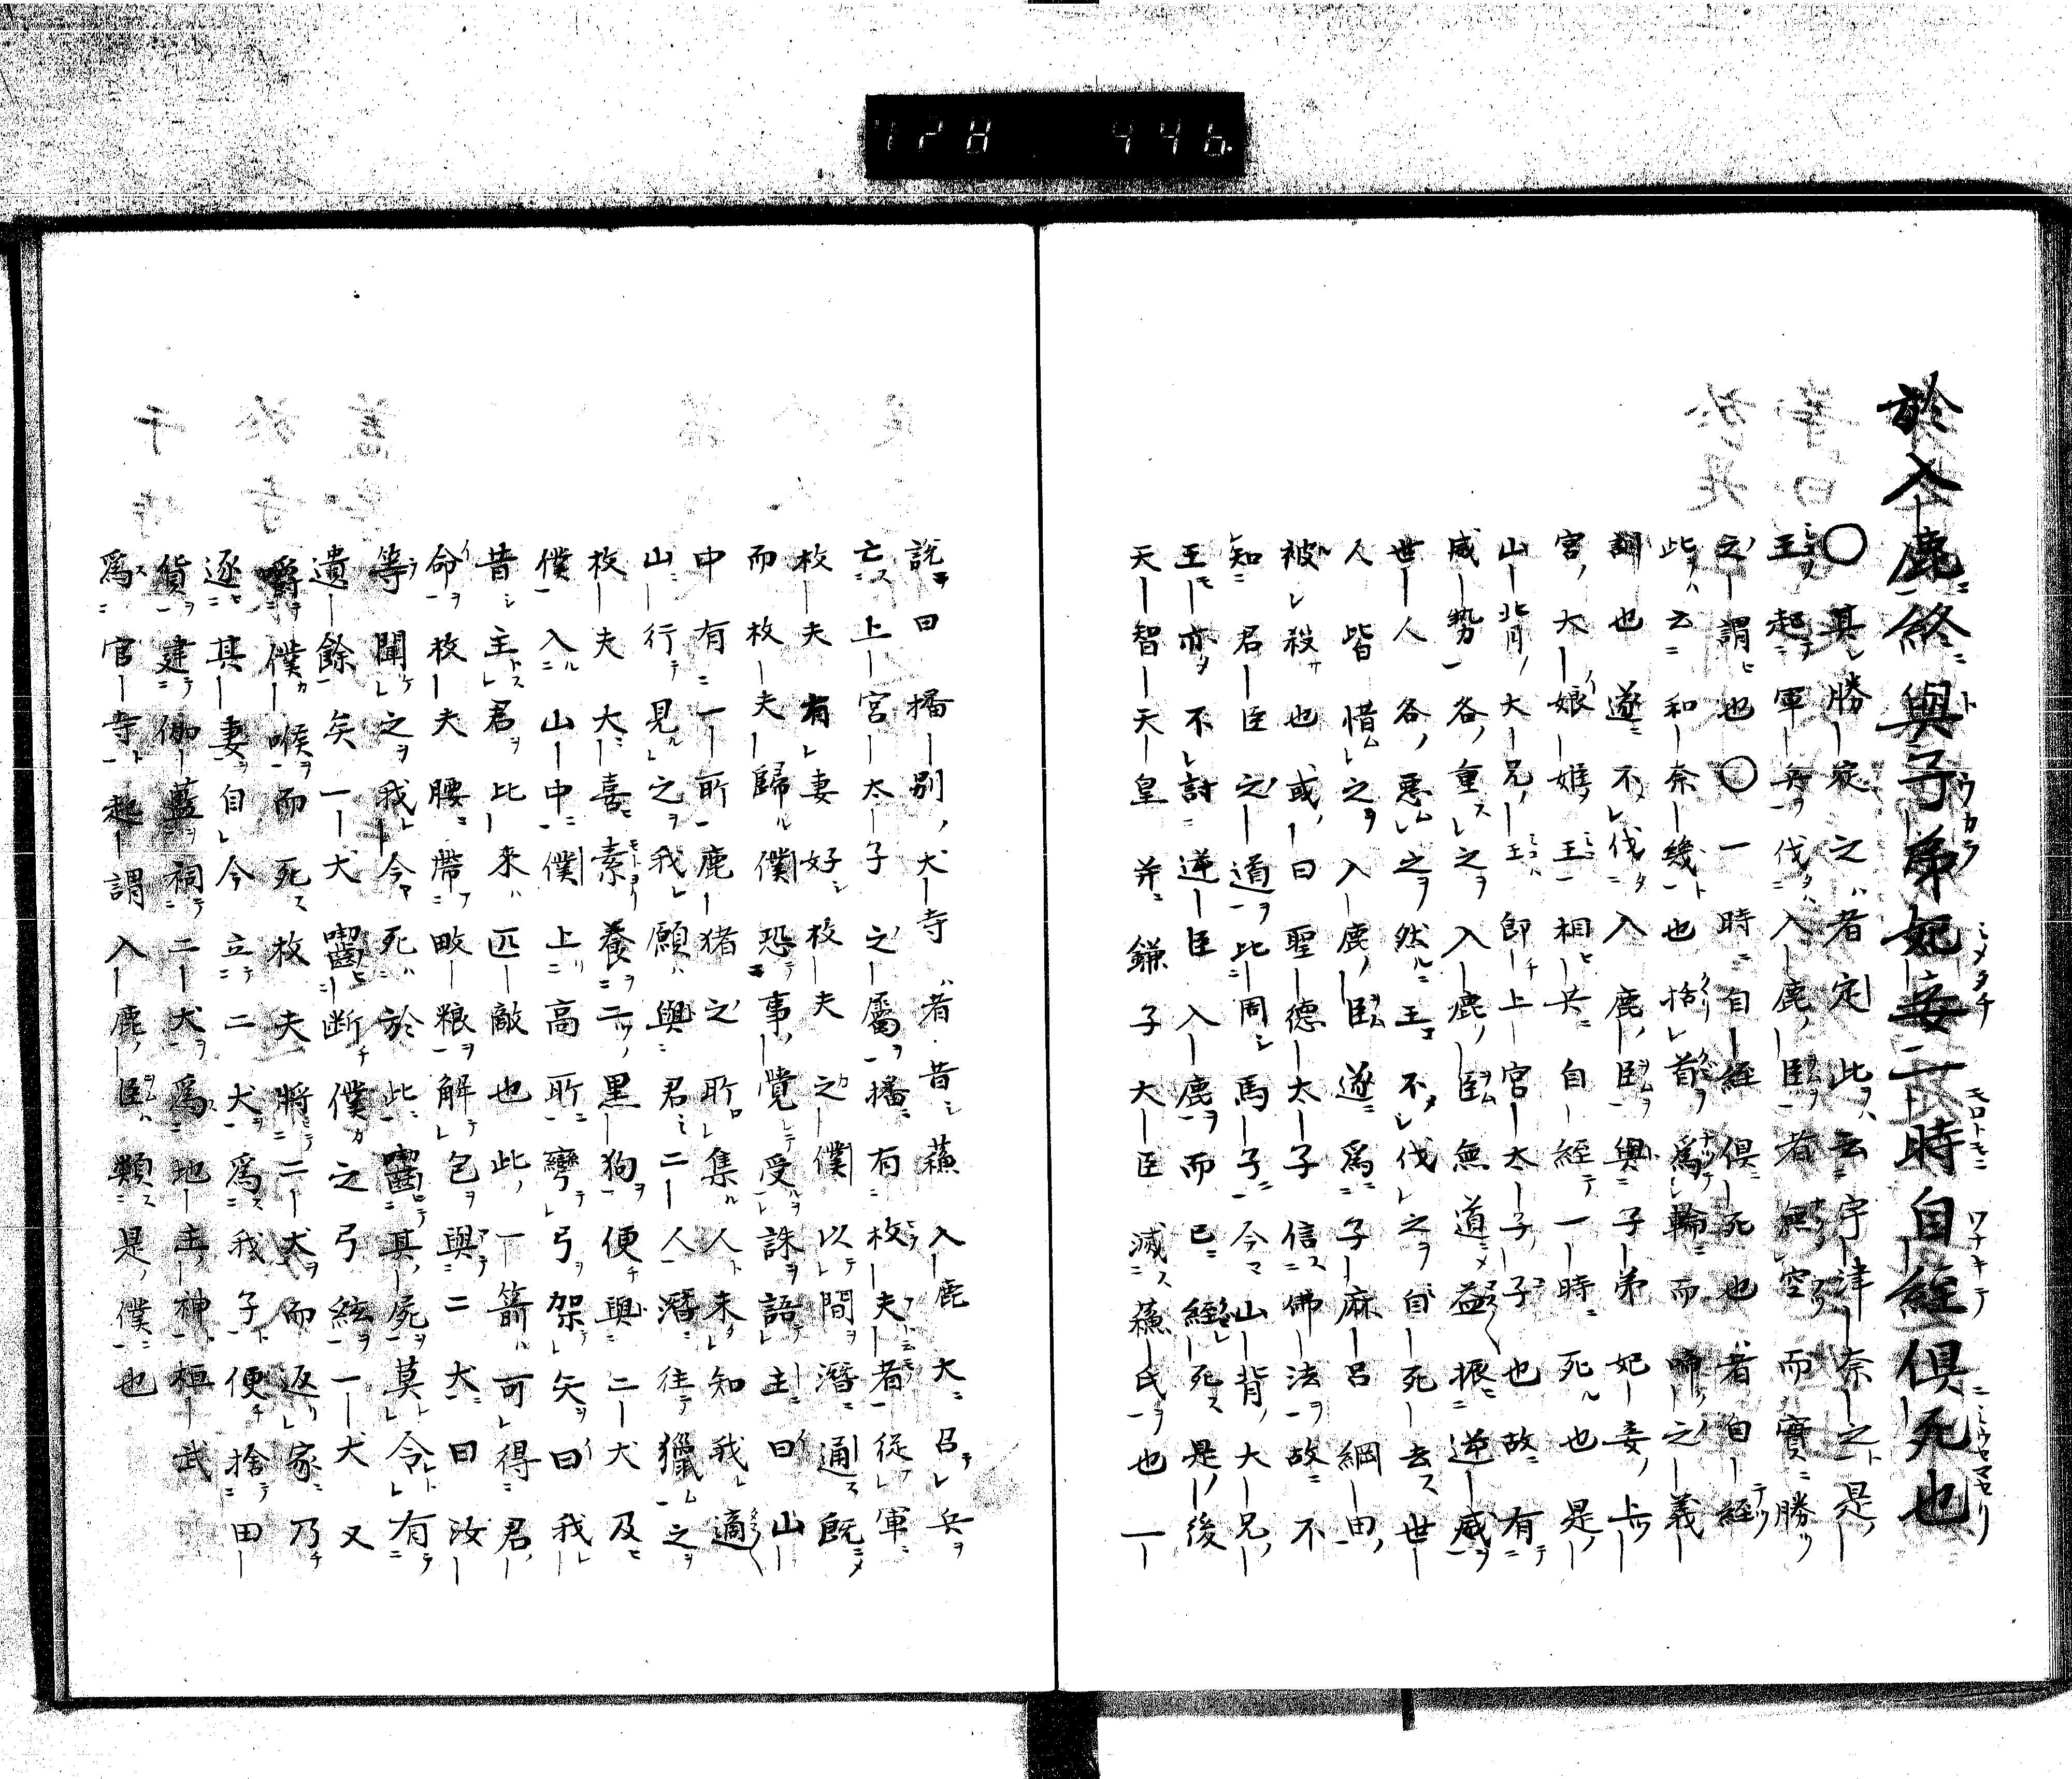 於入鹿終與子弟妃妾一時自經俱死也
〇其勝定之者定此云宇津奈之是
王起軍兵伐入鹿臣者無空而實勝
之謂也〇一時自經俱死也者自經
此云和奈幾也括首爲輪而啼之義
訓也遂不伐入鹿臣與子弟妃妾上
宮大娘姫王相共自經一時死也是
山背大兄王即上宮太子子也故有
威勢各重之入鹿臣無道益振逆威
世人各惡之然王不伐之自死去世
人皆惜之入鹿臣遂爲子麻呂綱由
被殺也或曰聖德太子信佛法故不
知君臣之道比周馬子今山背大兄
王亦不討逆臣入鹿而已經死是後
天智天皇并鎌子大臣滅蘓氏也一
說曰播別犬寺者昔蘓入鹿大召兵
亡上宮太子之屬播有枚夫者從軍
枚夫有妻好枚夫之僕以間潛通既
而枚夫歸僕恐事覺受誅語主曰山
中有一所鹿猪之所集人未知我適
山行見之我願與君二人潛往獵之
枚夫大喜素養二黑狗便與二犬及
僕入山中僕上高所彎弓架矢曰我
昔主君比來匹敵也此一箭可得君
命枚夫腰帶畋粮解包與二犬曰汝
等聞之我今死於此嚙其屍莫令有
遺餘矣一犬嚙断僕之弓絃一犬又
嚼僕喉而死枚夫將二犬而返家乃
逐其妻自今立二犬爲我子便捨田
貨建伽藍祠二犬爲地主神桓武
爲官寺起謂入鹿臣類是僕也